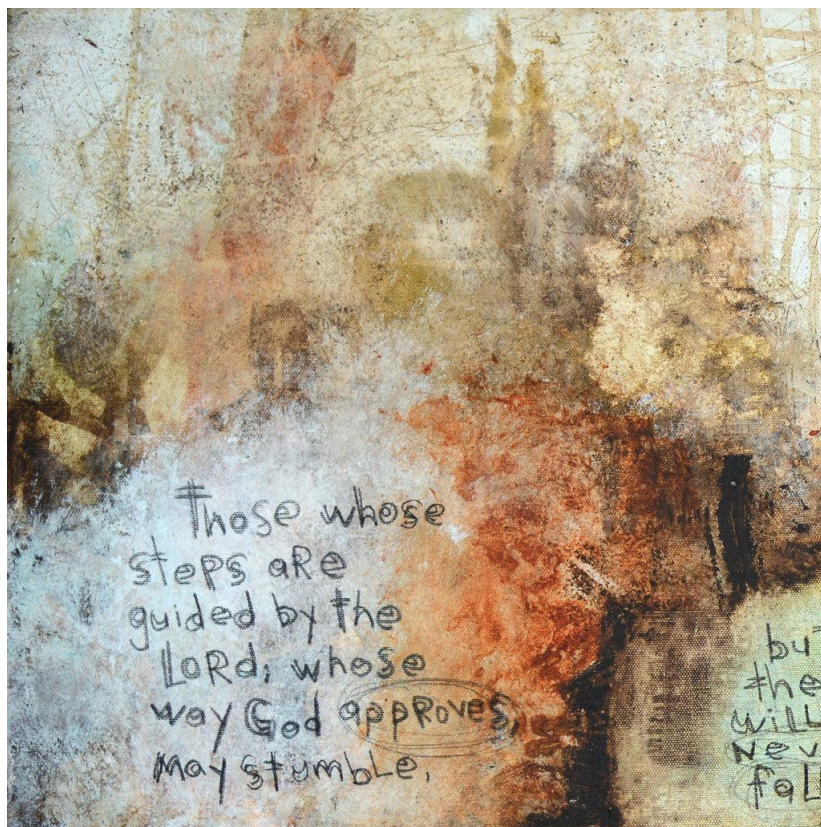 Those whose
steps are
guided by the
LoRd; whose
way God appRoves,
may stumble,
bu
the
will
Nev
fal